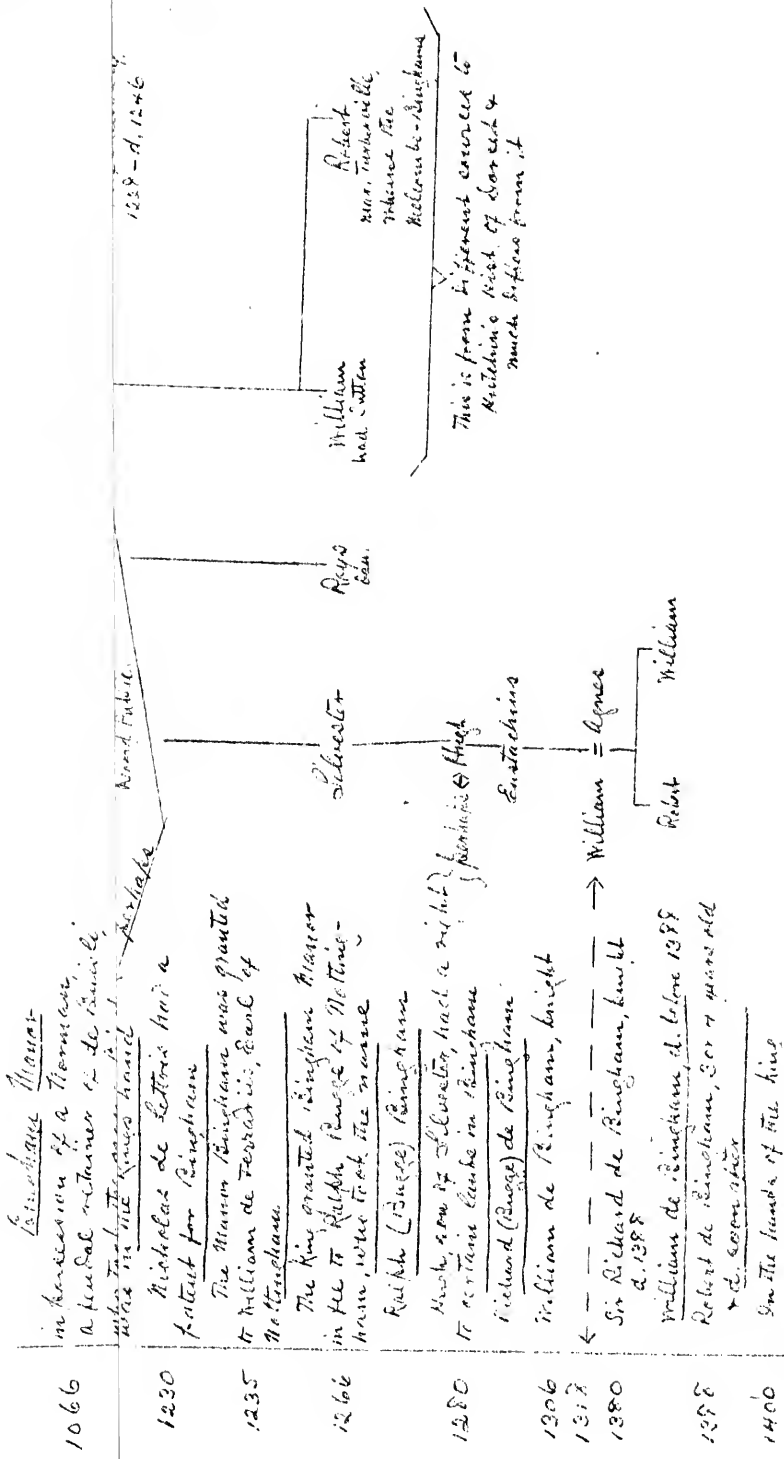 Bingham Manor
1066
in possession of a Norman,
a feudal retainer of de Busili,
was in the King's hand
perhaps
1230
Nicholas de Lettris had a
patent for Bingham
1235
The Manor Bingham was granted
to William de Ferrariis, Earl of
Nottingham
1266
The King granted Bingham Manor
in fee to Ralph Bugge of Notting-
ham, who took the name
Ralph (Bugge) Bingham
1280
Hugh, son of Silvester, had a right
to certain lands in Bingham
Richard (Bugge) de Bingham
1306
William de Bingham, knight
1318
1380
Sir Richard de Bingham, knight
d. 1388
William de Bingham, d. before 1388
1388
Robert de Bingham, 3 or 4 years old
& d. soon after
1400
In the hands of the King
Silvester
perhaps Hugh
Eustachius
William = Agnes
Robert
William
Rays
William
had Sutton
1238 - d. 1246
Robert
mar. Turberville,
whence the
Melcombe-Binghams
This is from different sources to
Hutchins Hist. of Dorset &
much differs from it